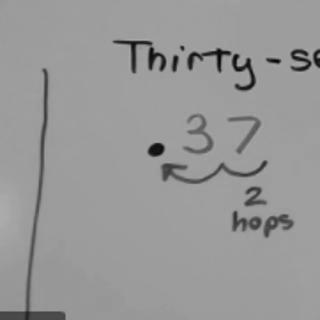 Thirty-se
.37
2
hops